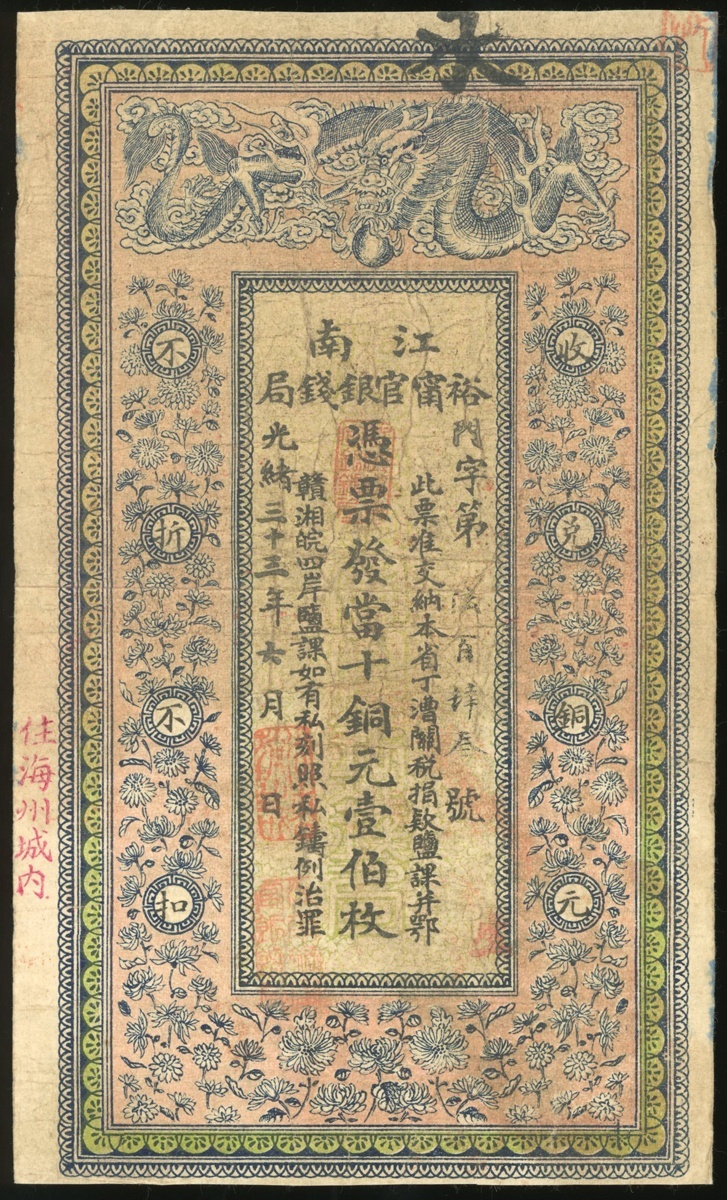 永
江南
裕甯官銀錢局
收兑銅元
字第 百肆叁號
此票准交納本省丁漕關税捐欵鹽課并鄂
憑票發當十銅元壹伯枚
贛湘皖四岸鹽課如有私刻照私鑄例治罪
光緒三十三年六月 日
不折不扣
住海州城内